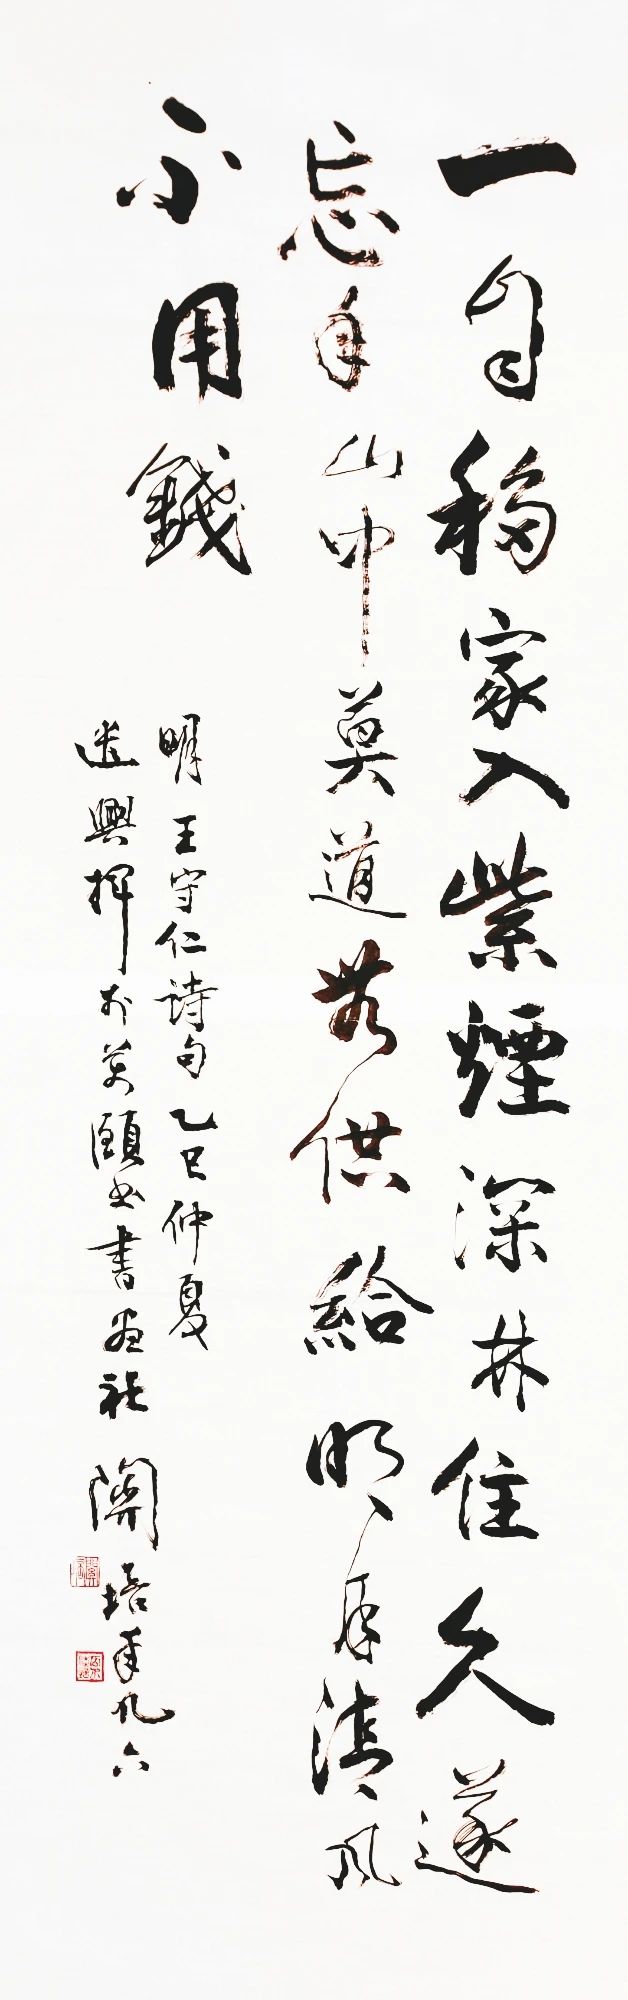 一自移家入紫煙深林住久遂
忘年山中莫道無供給明月清風
不用錢
明王守仁詩句乙巳仲夏
遣興揮於萬頤書畫社關培年九六